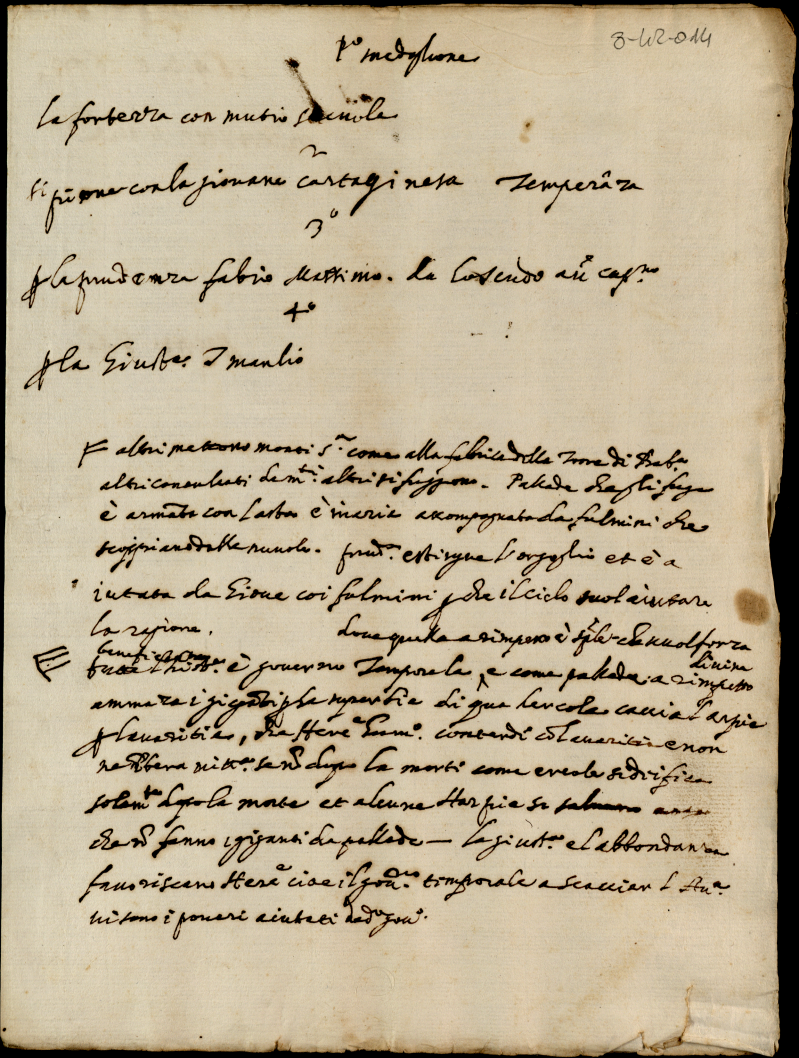 8-42-014
P.º medaglione
la fortezza con mutio scevola
2
Si pũ con la giovane cartaginesa Temperãza
3º
la prudenza fabio Massimo. da lo scudo
4º
la Giust.ª T manlio
altri mettono monti s.ª come alla fabrica della Torre di Bab.ª
altri conculcati da m.ti altri si fuggono. Pallade che gli fuga
è armata con l'asta è in aria accompagnata da fulmini che
scoppiano dalle nuvole. prud.ª estingue l'orgoglio et è a
iutata da Giove coi fulmini che il cielo suol aiutare
la ragione. dove quella a rimpetto è che vuol forza
divina
è governo Temporale, e come pallade a rimpetto
ammaza i giganti la superbia di qua hercole caccia l'arpie
l'avaritia, che Herc.e contendi cõ l'avaritia e non
ne libera se nõ dopo la morti come ercole si deifica
solam.te dopo la morte et alcune Harpie si salvano
che nõ fanno i giganti da pallade — la giust.ª e l'abbondanza
favoriscano Herc.e cioe il gov.no temporale a scacciar l'Av.ª
vi sono i poveri aiutati dal gov.º